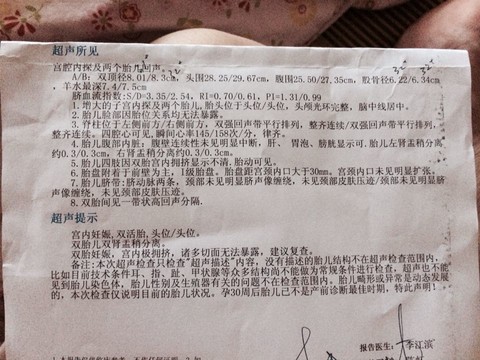 超声所见
宫腔内探及两个胎儿回声。
A/B: 双顶径8.01/8.3cm, 头围28.25/29.67cm, 腹围25.50/27.35cm, 股骨径6.22/6.34cm
, 羊水最深7.4/7.5cm
脐血流指数:S/D=3.35/2.54, RI=0.70/0.61, PI=1.31/0.99
1.增大的子宫内探及两个胎儿,胎头位于头位/头位, 头颅光环完整, 脑中线居中。
2.胎儿脸部因胎位关系均无法暴露。
3.脊柱位于左侧前方/右侧前方, 双强回声带平行排列, 整齐连续/双强回声带平行排列,
整齐连续。四腔心可见,瞬间心率145/158次/分, 律齐。
4.胎儿腹部内脏: 腹壁连续性未见明显中断, 肝、胃泡、膀胱显示可,胎儿左肾盂稍分离
约0.3/0.3cm, 右肾盂稍分离约0.3/0.3cm。
5.胎儿四肢因双胎宫内拥挤显示不清, 胎动可见。
6.胎盘附着于前壁为主, I级胎盘。胎盘距宫颈内口大于30mm。宫颈内口未见明显扩张。
7.胎儿脐带:脐动脉两条, 颈部未见明显脐声像缠绕, 未见颈部皮肤压迹/颈部未见明显脐
声像缠绕, 未见颈部皮肤压迹。
8.双胎间见一带状高回声分隔。
超声提示
宫内妊娠, 双活胎, 头位/头位。
双胎儿双肾盂稍分离。
双胎妊娠, 宫内极拥挤, 诸多切面无法暴露, 建议复查。
备注:本次超声检查只检查"超声描述"内容, 没有描述的胎儿结构不在超声检查范围内,
比如目前技术条件耳、指、趾、甲状腺等众多结构尚不能做为常规条件进行检查, 超声也不能
见到胎儿染色体, 胎儿性别及生殖器有关的问题不在检查范围内。胎儿畸形或异常是动态发展
的, 本次检查仅说明目前的胎儿状况。孕30周后胎儿已不是产前诊断最佳时期, 特此声明!
报告医生: 李江滨